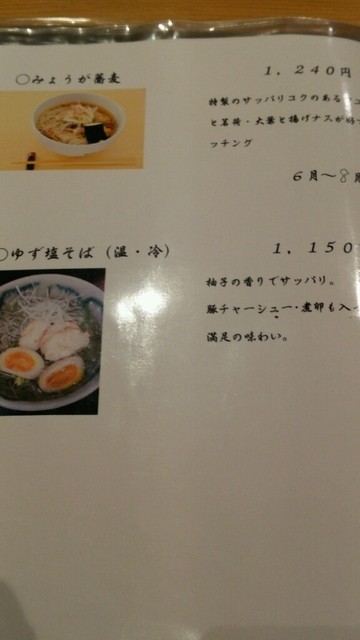 ○みょうが蕎麦
1，240円
特製のサッパリコクのある
と茗荷・大葉と揚げナスが好
ッチング
6月～8月
○ゆず塩そば（温・冷）
1，150
柚子の香りでサッパリ。
豚チャーシュー・煮卵も入
満足の味わい。